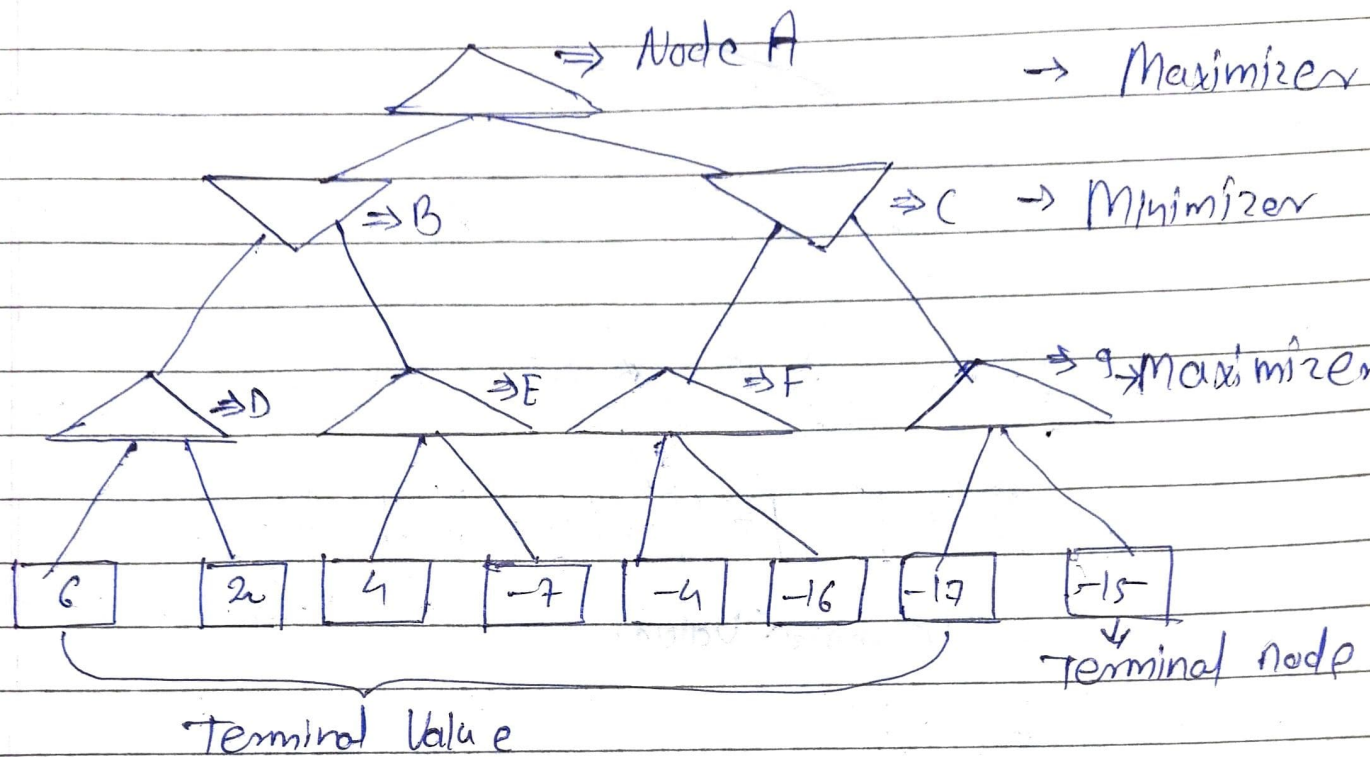 ⇒ Node A → Maximizer
⇒ B ⇒ C → Minimizer
⇒ D ⇒ E ⇒ F ⇒ g → Maximizer
6 2 4 -7 -4 -16 -17 -15
Terminal node
Terminal Value